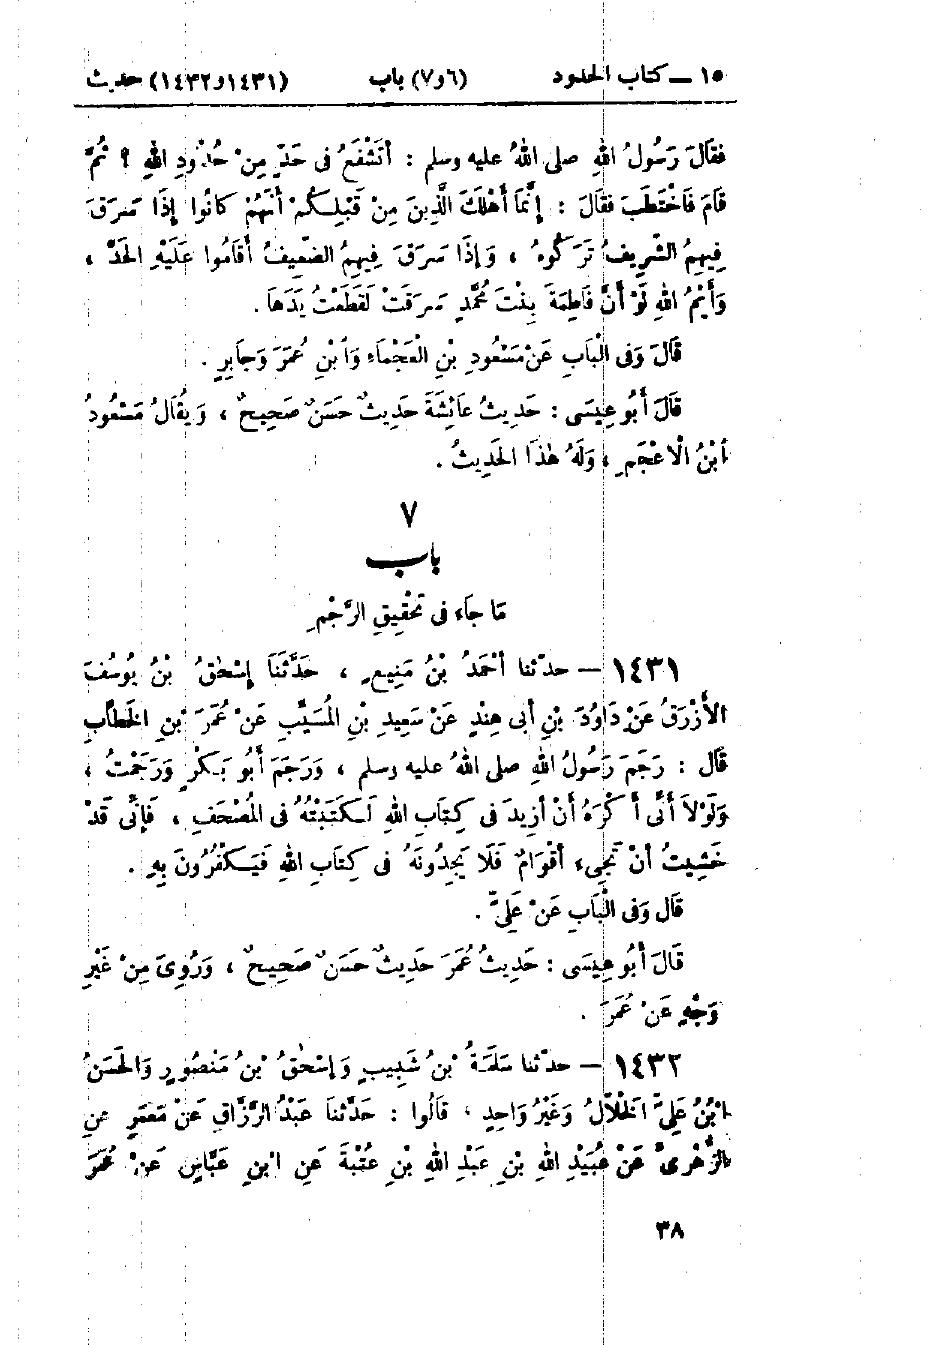 ١٥ ــ كتاب الحدود (٦و٧) باب (١٤٣١و١٤٣٢) حديث
فَقَالَ رَسُولُ اللهِ صلى اللهُ عليه وسلم : أَتَشْفَعُ فى حَدٍّ مِنْ حُدُودِ اللهِ ؟ ثُمَّ
قَامَ فَاخْتَطَبَ فَقَالَ : إِنَّمَا أَهْلَكَ الَّذِينَ مِنْ قَبْلِكُمْ أَنَّهُمْ كَانُوا إِذَا سَرَقَ
فِيهِمُ الشَّرِيفُ تَرَكُوهُ ، وَإِذَا سَرَقَ فِيهِمُ الضَّعِيفُ أَقَامُوا عَلَيْهِ الحَدَّ ،
وَأَيْمُ اللهِ لَوْ أَنَّ فَاطِمَةَ بِنْتَ مُحَمَّدٍ سَرَقَتْ لَقَطَعْتُ يَدَهَا .
قَالَ وَفى الْبَابِ عَنْ مَسْعُودِ بْنِ الْعَجْمَاءِ وَابْنِ عُمَرَ وَجَابِرٍ .
قَالَ أَبُو عِيسَى : حَدِيثُ عَائِشَةَ حَدِيثٌ حَسَنٌ صَحِيحٌ ، وَيُقَالُ مَسْعُودُ
ابْنُ الْأَعْجَمِ ، وَلَهُ هٰذَا الحَدِيثُ .
٧
باب
مَا جَاءَ فى تَحْقِيقِ الرَّجْمِ
١٤٣١ — حدّثنا أَحْمَدُ بْنُ مَنِيعٍ ، حَدَّثَنَا إِسْحٰقُ بْنُ يُوسُفَ
الأَزْرَقُ عَنْ دَاوُدَ بْنِ أَبى هِنْدٍ عَنْ سَعِيدِ بْنِ المُسَيَّبِ عَنْ عُمَرَ بْنِ الخَطَّابِ
قَالَ : رَجَمَ رَسُولُ اللهِ صلى اللهُ عليه وسلم ، وَرَجَمَ أَبُو بَكْرٍ وَرَجَمْتُ ،
وَلَوْلَا أَنِّى أَكْرَهُ أَنْ أَزِيدَ فى كِتَابِ اللهِ لَكَتَبْتُهُ فى المُصْحَفِ ، فَإِنِّى قَدْ
خَشِيتُ أَنْ تَجِىءَ أَقْوَامٌ فَلَا يَجِدُونَهُ فى كِتَابِ اللهِ فَيَكْفُرُونَ بِهِ .
قَالَ وَفى الْبَابِ عَنْ عَلِىٍّ .
قَالَ أَبُو عِيسَى : حَدِيثُ عُمَرَ حَدِيثٌ حَسَنٌ صَحِيحٌ ، وَرُوِىَ مِنْ غَيْرِ
وَجْهٍ عَنْ عُمَرَ .
١٤٣٢ — حدّثنا سَلَمَةُ بْنُ شَبِيبٍ وَإِسْحٰقُ بْنُ مَنْصُورٍ وَالحَسَنُ
ابْنُ عَلِىٍّ الخَلَّالُ وَغَيْرُ وَاحِدٍ ، قَالُوا : حَدَّثَنَا عَبْدُ الرَّزَّاقِ عَنْ مَعْمَرٍ عَنِ
الزُّهْرِىِّ عَنْ عُبَيْدِ اللهِ بْنِ عَبْدِ اللهِ بْنِ عُتْبَةَ عَنِ ابْنِ عَبَّاسٍ عَنْ عُمَرَ
٣٨